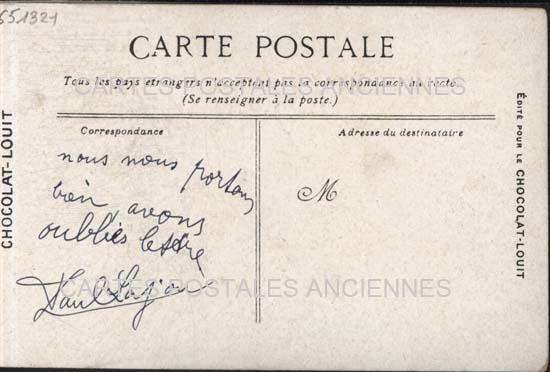 651321
CARTE POSTALE
Tous les pays etrangers n'acceptent pas la correspondance au recto.
(Se renseigner à la poste.)
CARTES POSTALES ANCIENNES
Correspondance
Adresse du destinataire
nous nous portons
bien, avons
oubliés
Paul
M
CARTES POSTALES ANCIENNES
CHOCOLAT-LOUIT
ÉDITÉ POUR LE CHOCOLAT-LOUIT